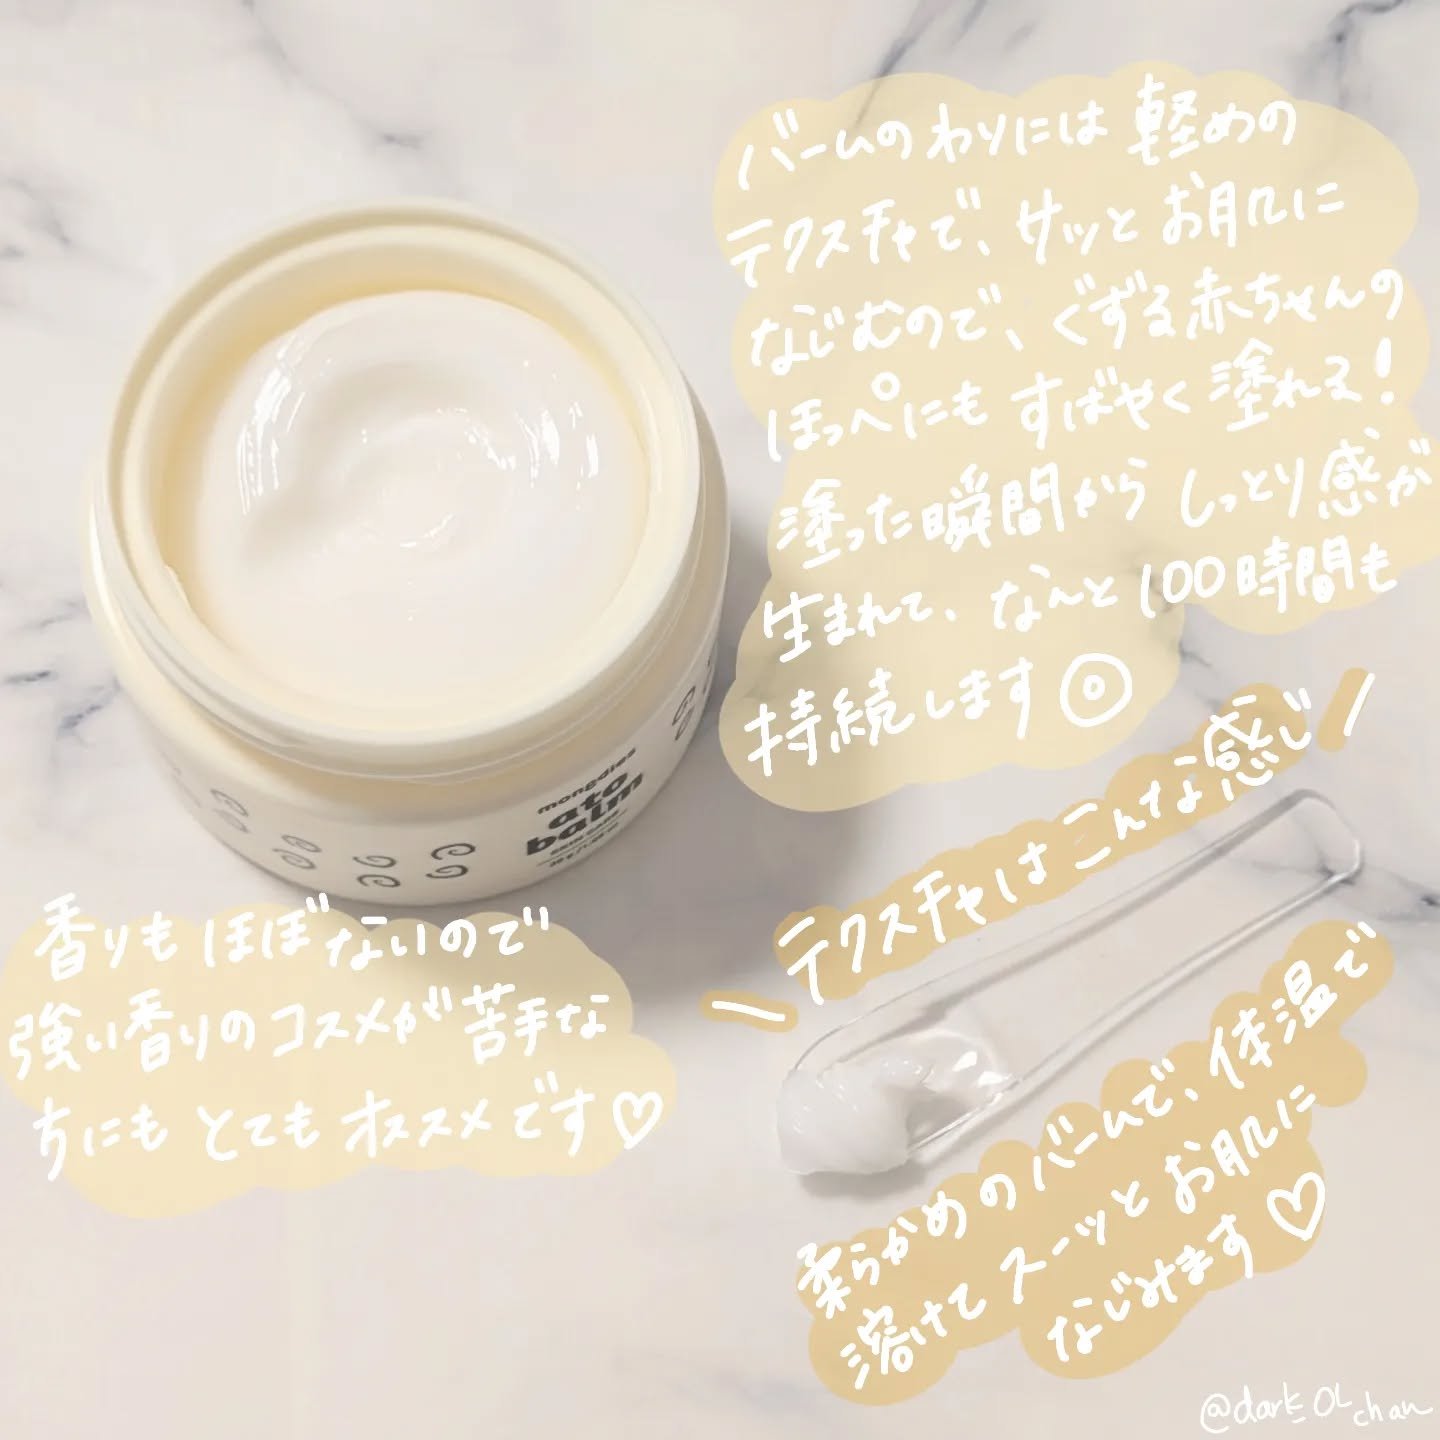 バームのわりには軽めの
テクスチャで、サッとお肌に
なじむので、ぐずる赤ちゃんの
ほっぺにもすばやく塗れる!
塗った瞬間からしっとり感が
生まれて、なんと100時間も
持続します◎
mongdies
ato
balm
香りもほぼないので
強い香りのコスメが苦手な
方にもとてもオススメです♡
\テクスチャはこんな感じ/
柔らかめのバームで、体温で
溶けてスーッとお肌に
なじみます♡
@dark_OL_chan